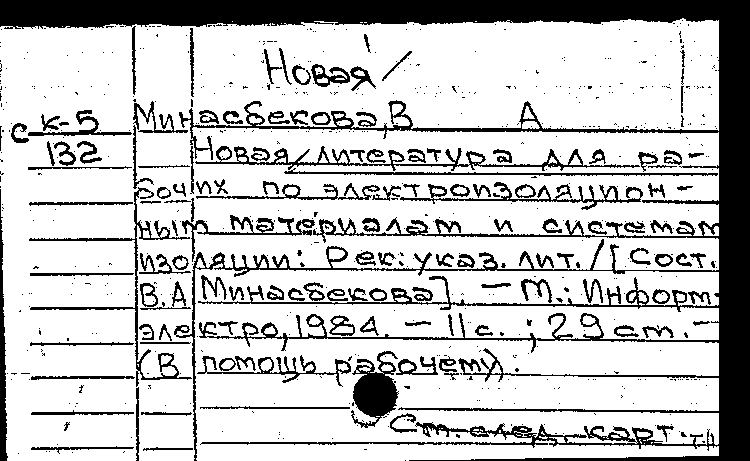 Новая /
с к-5 Минасбекова, В А
132 Новая/литература для ра-
бочих по электроизоляцион-
ным материалам и системам
изоляции: Рек. указ. лит. / [Сост.
В.А Минасбекова]. — М.: Информ-
электро, 1984. — 11 с. ; 29 см. —
(В помощь рабочему).
См. след. карт.